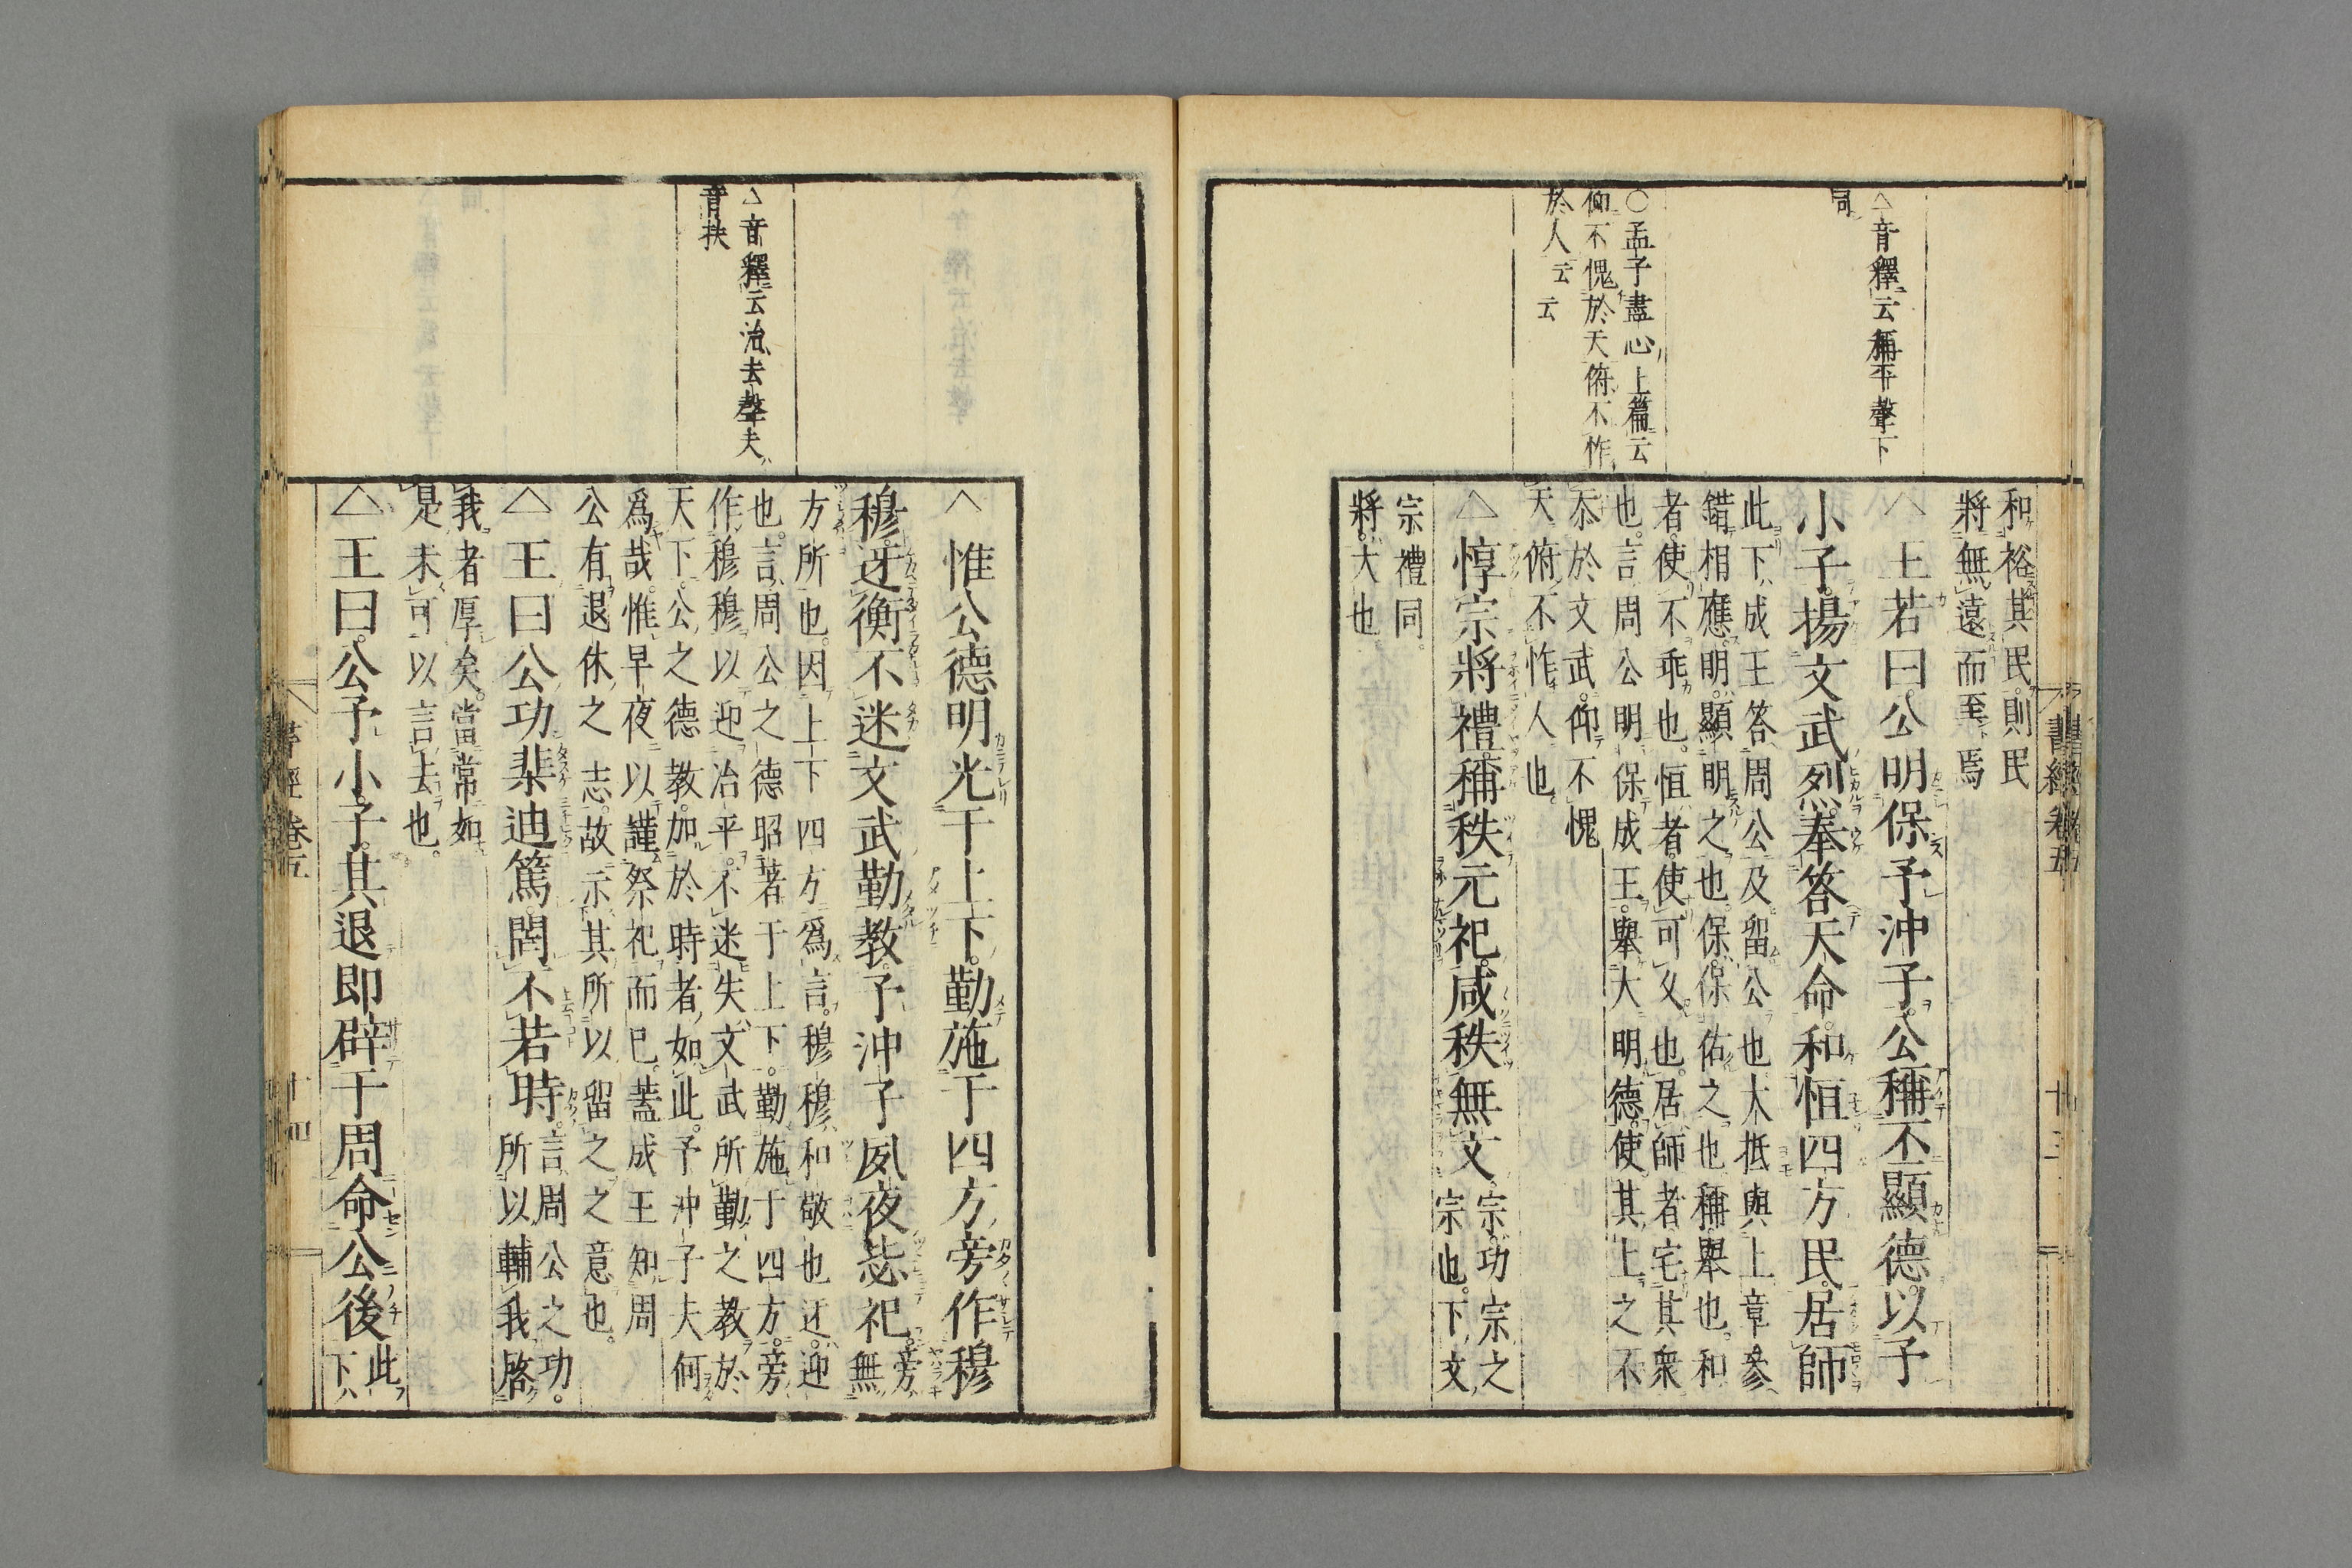 書經卷五
十三
△音釋云稱平聲下
同
○孟子盡心上篇云
仰不愧於天俯不怍
於人云云
和裕其民。則民
將無遠而至焉
△王若曰。公明保予沖子。公稱丕顯德。以予
小子。揚文武烈。奉答天命。和恒四方民。居師
此下。成王答周公及留公也。大抵與上章參
錯相應。明。顯明之也。保。保佑之也。稱。舉也。和
者。使不乖也。恒者。使可久也。居師者。宅其衆
也。言周公明保成王。舉大明德。使其上之不
忝於文武。仰不愧
天俯不怍人也。
△惇宗將禮。稱秩元祀。咸秩無文。
宗。功宗之
宗也。下文
宗禮同。
將。大也。
△音釋云治去聲夫
音扶
△惟公德明光于上下。勤施于四方。旁作穆
穆。迓衡不迷文武勤教。予沖子夙夜毖祀。
旁。無
方所也。因上下四方爲言。穆穆。和敬也。迓。迎
也。言周公之德。昭著于上下。勤施于四方。旁
作穆穆以迎治平。不迷失文武所勤之教於
天下。公之德教。加於時者如此。予沖子夫何
爲哉。惟早夜以謹祭祀而已。蓋成王知周
公有退休之志。故示其所以留之之意也。
△王曰。公功棐迪篤。罔不若時。
言周公之功。
所以輔我啓
我者厚矣。當常如
是。未可以言去也。
△王曰。公。予小子。其退即辟于周。命公後。
此
下
書經卷五
十四